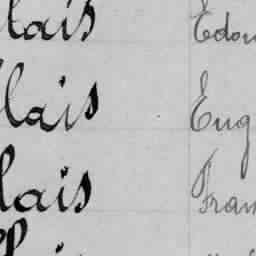 lais Edou
lais Eug
lais Fran